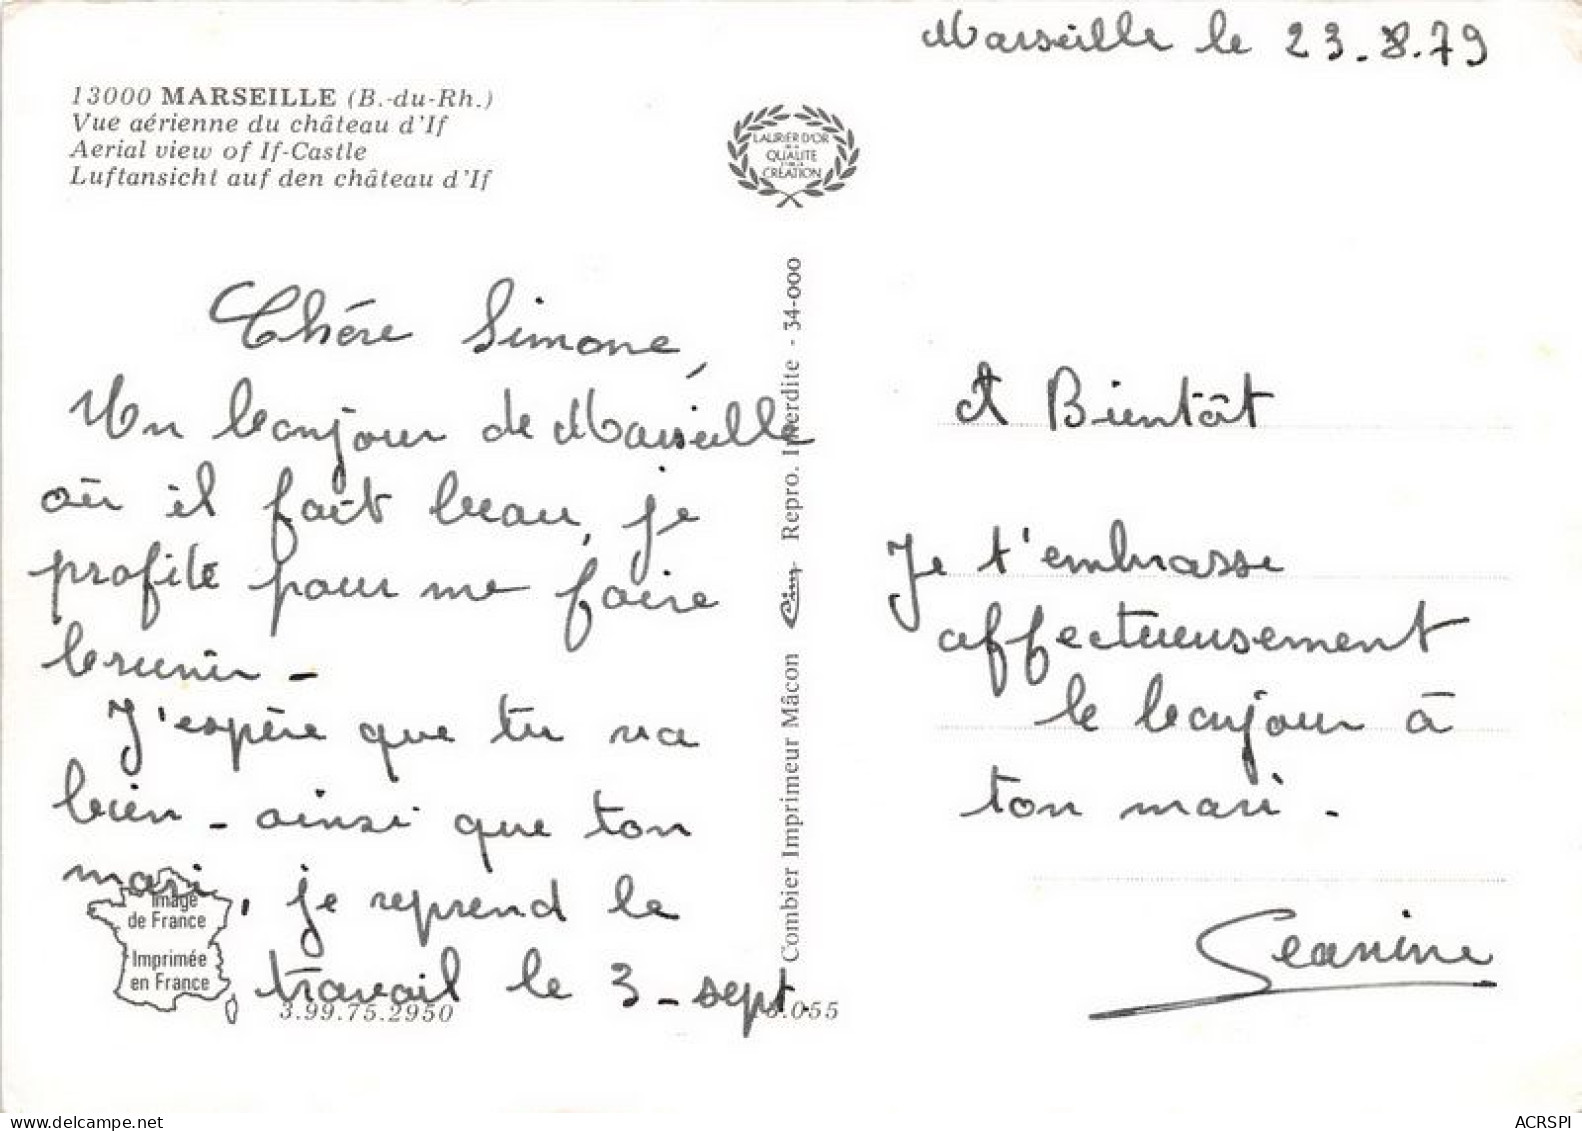 Marseille le 23.8.79
13000 MARSEILLE (B.-du-Rh.)
Vue aérienne du château d'If
Aerial view of If-Castle
Luftansicht auf den château d'If
LAURIER D'OR
DE LA
QUALITE
ET DE LA
CRÉATION
Chére Simone,
Un bonjour de Marseille
où il fait beau, je
profite pour me faire
brunir -
J'espère que tu va
bien - ainsi que ton
mari, je reprend le
travail le 3 - sept.
Image
de France
Imprimée
en France
3.99.75.2950
.055
Combier Imprimeur Mâcon
Cim
Repro. Interdite - 34-000
A Bientôt
Je t'embrasse
affectueusement
le bonjour à
ton mari -
Jeanine
delcampe.net
ACRSPI